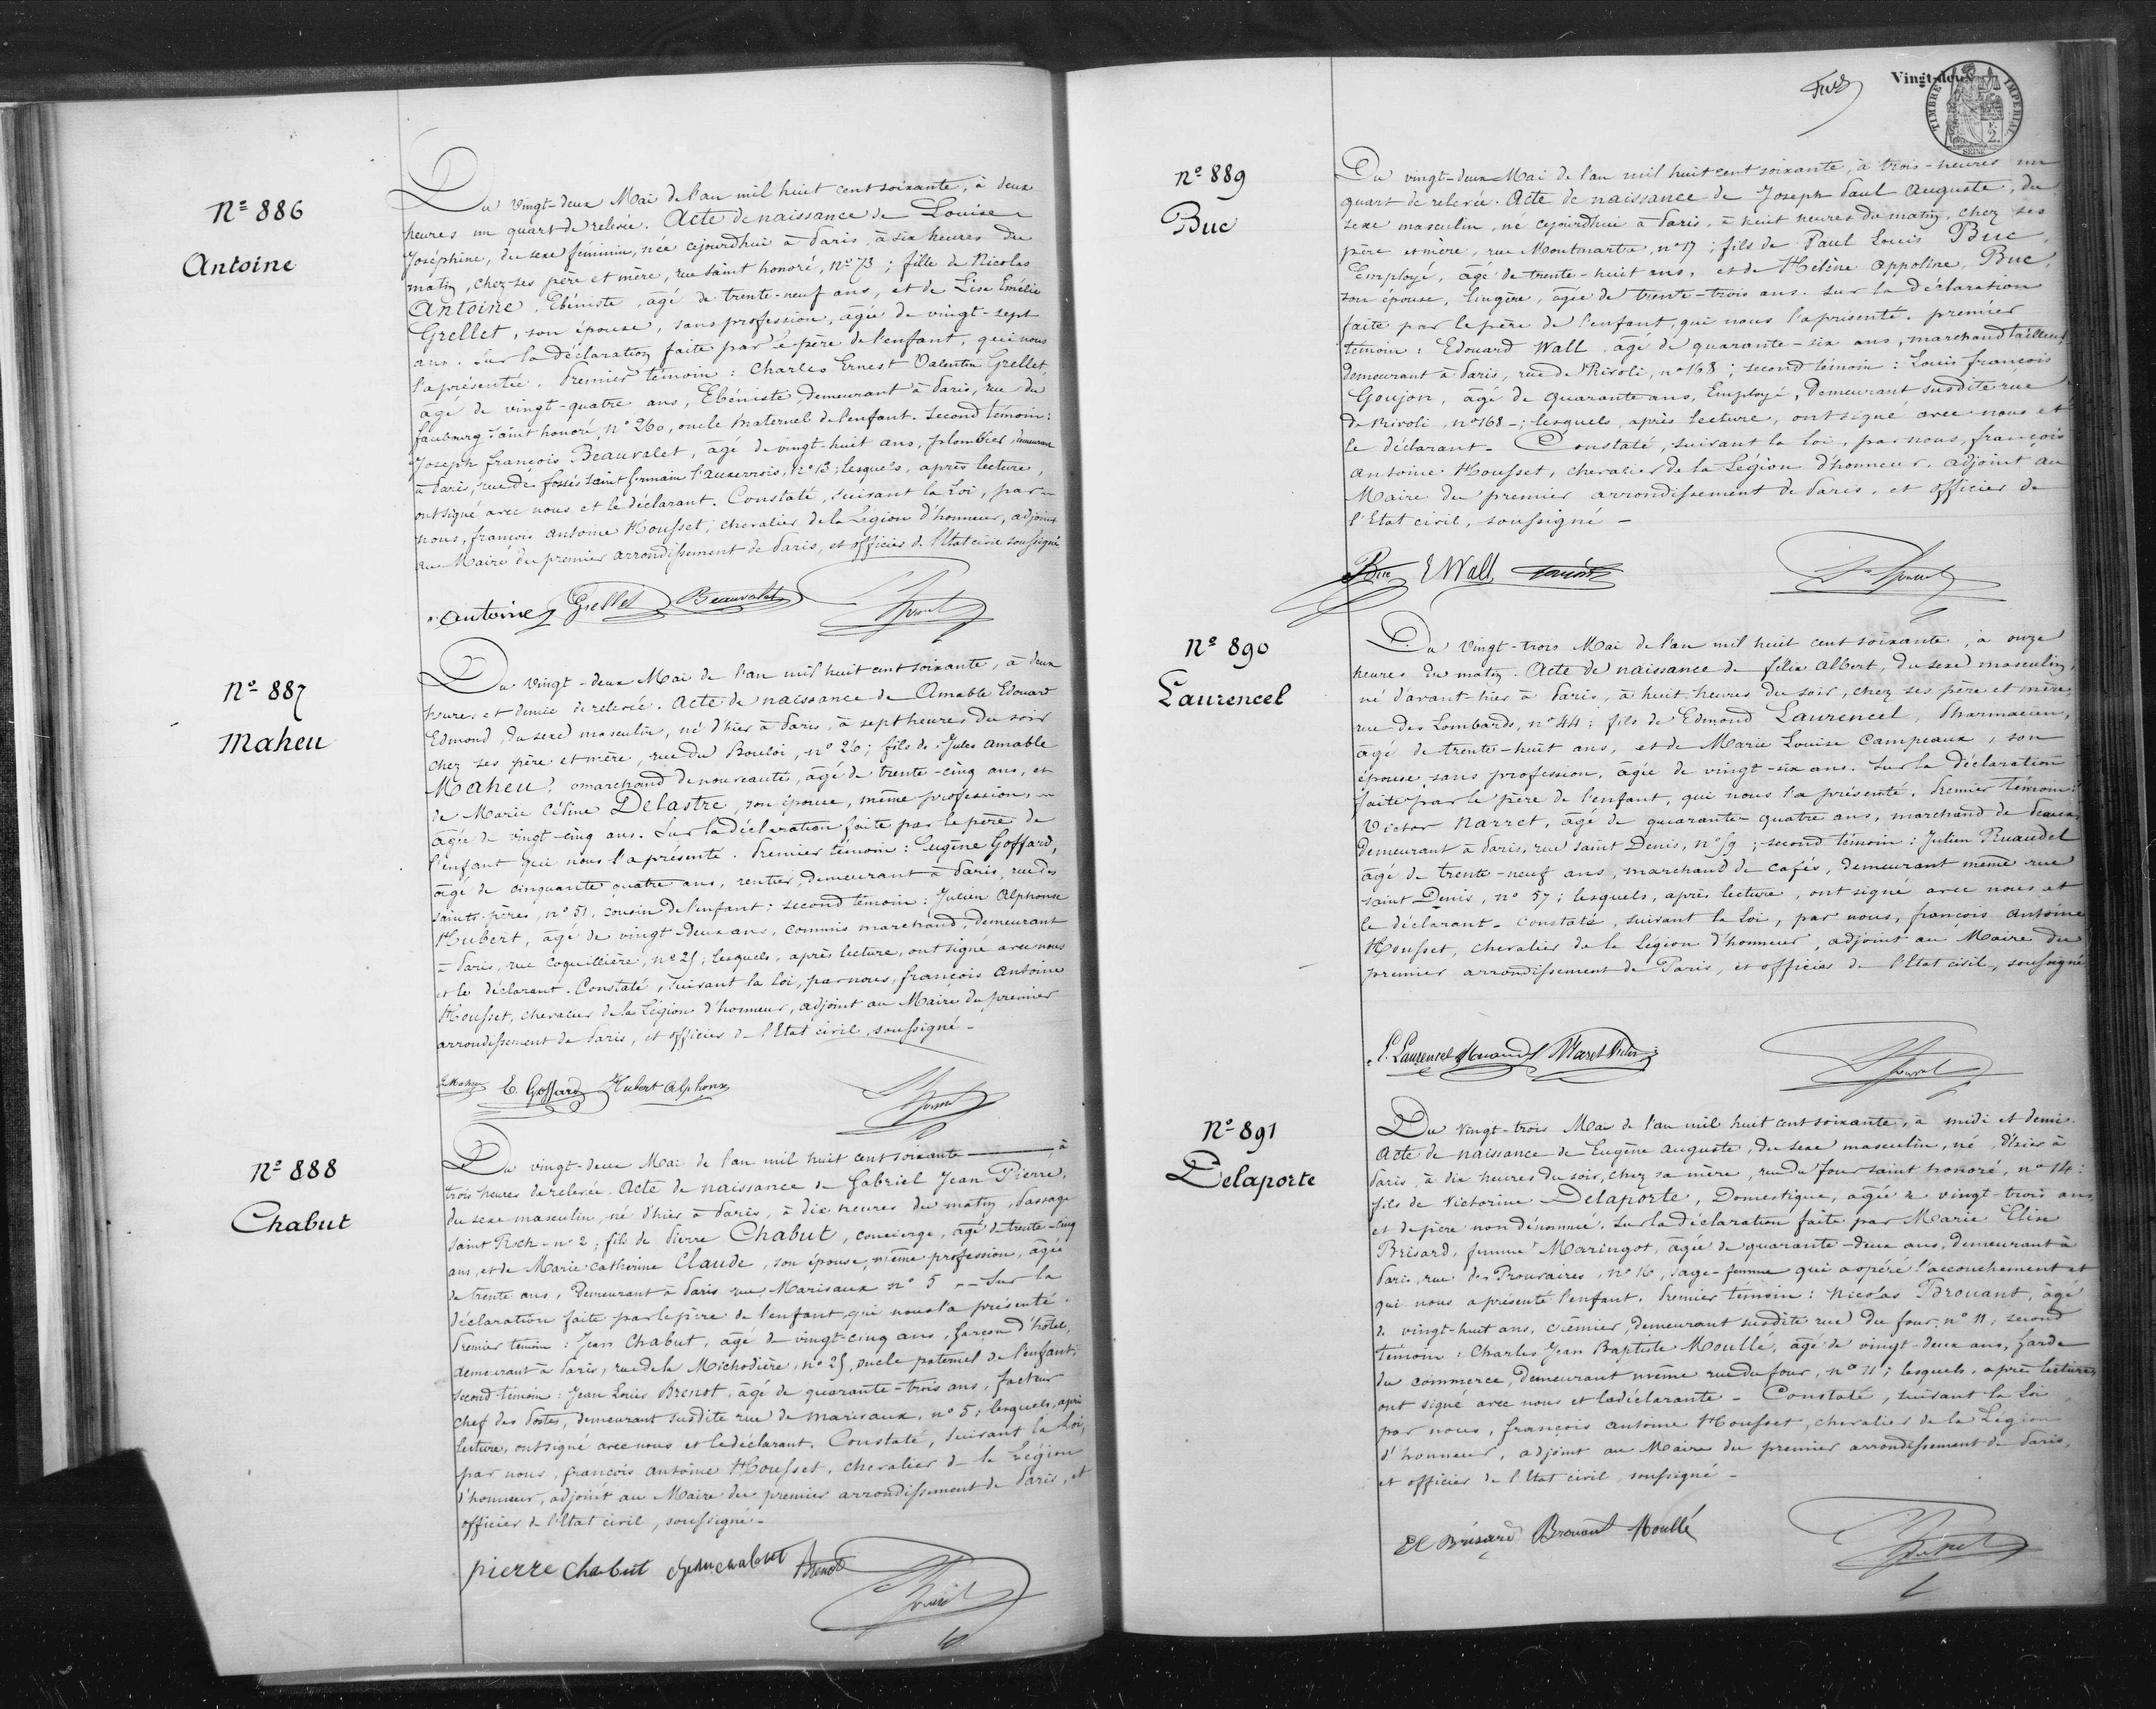 Nº 886
Antoine
Du vingt-deux Mai de l'an mil huit cent soixante, à deux
heures un quart de relevée. Acte de naissance de Louise
Joséphine, du sexe féminin, née cejourd'hui à Paris, à six heures du
matin, chez ses père et mère, rue saint honoré, nº 73; fille de Nicolas
Antoine, Ebéniste, âgé de trente-neuf ans, et de Lise Emélie
Grellet, son épouse, sans profession, âgée de vingt-sept
ans. Sur la déclaration faite par le père de l'enfant, qui nous
l'a présentée. Premier témoin: Charles Ernest Valentin Grellet,
âgé de vingt-quatre ans, Ebéniste, demeurant à Paris, rue du
faubourg saint honoré, nº 260, oncle maternel de l'enfant. Second témoin:
Joseph françois Beauvalet, âgé de vingt-huit ans, plombier, demeurant
à Paris, rue des fossés saint germain l'auxerrois, nº 13; lesquels, après lecture,
ont signé avec nous et le déclarant. Constaté, suivant la Loi, par
nous, françois antoine Housset, chevalier de la Légion d'honneur, adjoint
au Maire du premier arrondissement de Paris, et officier de l'Etat civil soussigné
antoine Grellet Beauvalet
Nº 887
Maheu
Du vingt-deux Mai de l'an mil huit cent soixante, à deux
heures et demie de relevée. Acte de naissance de Amable Edouard
Edmond, du sexe masculin, né d'hier à Paris, à sept heures du soir
chez ses père et mère, rue du Bouloi, nº 26; fils de Jules amable
Maheu, marchand de nouveautés, âgé de trente-cinq ans, et
de Marie Céline Delastre, son épouse, même profession,
âgée de vingt-cinq ans. Sur la déclaration faite par le père de
l'enfant qui nous l'a présenté. Premier témoin: Eugène Goffard,
âgé de cinquante quatre ans, rentier, demeurant à Paris, rue des
saints pères, nº 51, cousin de l'enfant; second témoin: Julien Alphonse
Hubert, âgé de vingt-deux ans, commis marchand, demeurant
à Paris, rue Coquillière, nº 25; lesquels, après lecture, ont signé avec nous
et le déclarant. Constaté, suivant la Loi, par nous, françois antoine
Housset, chevalier de la Légion d'honneur, adjoint au Maire du premier
arrondissement de Paris, et officier de l'Etat civil, soussigné-
Maheu E. Goffard Hubert Alphonse
Nº 888
Chabut
Du vingt-deux Mai de l'an mil huit cent soixante à
trois heures de relevée. Acte de naissance de Gabriel Jean Pierre,
du sexe masculin, né d'hier à Paris, à dix heures du matin, Passage
saint Roch nº 2; fils de Pierre Chabut, concierge, âgé de trente-cinq
ans, et de Marie catherine Claude, son épouse, même profession, âgée
de trente ans, Demeurant à Paris rue Marivaux nº 5 -- Sur la
déclaration faite par le père de l'enfant, qui nous l'a présenté.
Premier témoin: Jean Chabut, âgé de vingt-cinq ans, garçon d'hôtel,
demeurant à Paris, rue de la Michodière, nº 25, oncle paternel de l'enfant;
second témoin: Jean Louis Brenot, âgé de quarante-trois ans, facteur
chef des Postes, demeurant susdite rue de marivaux, nº 5; lesquels, après
lecture, ont signé avec nous et le déclarant. Constaté, suivant la Loi,
par nous, françois antoine Housset, chevalier de la Légion
d'honneur, adjoint au Maire du premier arrondissement de Paris, et
officier de l'Etat civil, soussigné-
pierre chabut Jean chabut Brenot
Vingt-deux
TIMBRE IMPERIAL
SEINE
Nº 889
Buc
Du vingt-deux Mai de l'an mil huit cent soixante, à trois heures un
quart de relevée. Acte de naissance de Joseph Paul Auguste, du
sexe masculin, né cejourd'hui à Paris, à huit heures du matin, chez ses
père et mère, rue Montmartre, nº 17; fils de Paul Louis Buc,
Employé, âgé de trente-huit ans, et de Hélène Appoline, Buc,
son épouse, lingère, âgée de trente-trois ans. sur la déclaration
faite par le père de l'enfant, qui nous l'a présenté. premier
témoin: Edouard Wall, âgé de quarante-six ans, marchand tailleur,
demeurant à Paris, rue de Rivoli, nº 168; second témoin: Louis françois
Goujon, âgé de quarante ans, Employé, demeurant susdite rue
de Rivoli, nº 168-; lesquels, après lecture, ont signé avec nous et
le déclarant- Constaté, suivant la Loi, par nous, françois
antoine Housset, chevalier de la Légion d'honneur, adjoint au
Maire du premier arrondissement de Paris, et officier de
l'Etat civil, soussigné-
Buc E Wall
Nº 890
Laurencel
Du vingt-trois Mai de l'an mil huit cent soixante, à onze
heures du matin. Acte de naissance de félix albert, du sexe masculin,
né d'avant-hier à Paris, à huit heures du soir, chez ses père et mère,
rue des Lombards, nº 44; fils de Edmond Laurencel, Pharmacien,
âgé de trente-huit ans, et de Marie Louise Campeaux, son
épouse, sans profession, âgée de vingt-six ans. Sur la déclaration
faite par le père de l'enfant, qui nous l'a présenté. Premier témoin:
Victor Narret, âgé de quarante-quatre ans, marchand de
demeurant à Paris, rue saint Denis, nº 59; second témoin: Julien Ruaudel
âgé de trente-neuf ans, marchand de cafés, demeurant même rue
saint Denis, nº 57; lesquels, après lecture, ont signé avec nous et
le déclarant- Constaté, suivant la Loi, par nous, françois antoine
Housset, chevalier de la Légion d'honneur, adjoint au Maire du
premier arrondissement de Paris, et officier de l'Etat civil, soussigné
E. Laurencel
Nº 891
Delaporte
Du vingt-trois Mai de l'an mil huit cent soixante, à midi et demi.
Acte de naissance de Eugène auguste, du sexe masculin, né d'hier à
Paris, à dix heures du soir, chez sa mère, rue du four saint honoré, nº 14:
fils de Victorine Delaporte, Domestique, âgée de vingt-trois ans
et de père non dénommé. Sur la déclaration faite par Marie Elise
Brisard, femme Maringot, âgée de quarante-deux ans, demeurant à
Paris, rue des Prouvaires, nº 16, sage-femme qui a opéré l'accouchement et
qui nous a présenté l'enfant. Premier témoin: Nicolas Brouant, âgé
de vingt-huit ans, crémier, demeurant susdite rue du four, nº 11; second
témoin: Charles Jean Baptiste Moullé, âgé de vingt-deux ans, Garde
du commerce, demeurant même rue du four, nº 11; lesquels, après lecture,
ont signé avec nous et la déclarante- Constaté, suivant la Loi
par nous, françois antoine Housset, chevalier de la Légion
d'honneur, adjoint au Maire du premier arrondissement de Paris,
et officier de l'Etat civil, soussigné-
Brisard Brouant Moullé